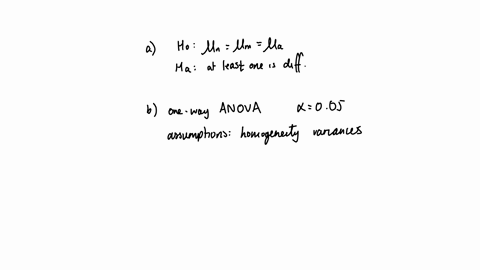 a) H₀: μₙ = μₘ = μₐ
Hₐ: at least one is diff.
b) one-way ANOVA α = 0.05
assumptions: homogeneity variances